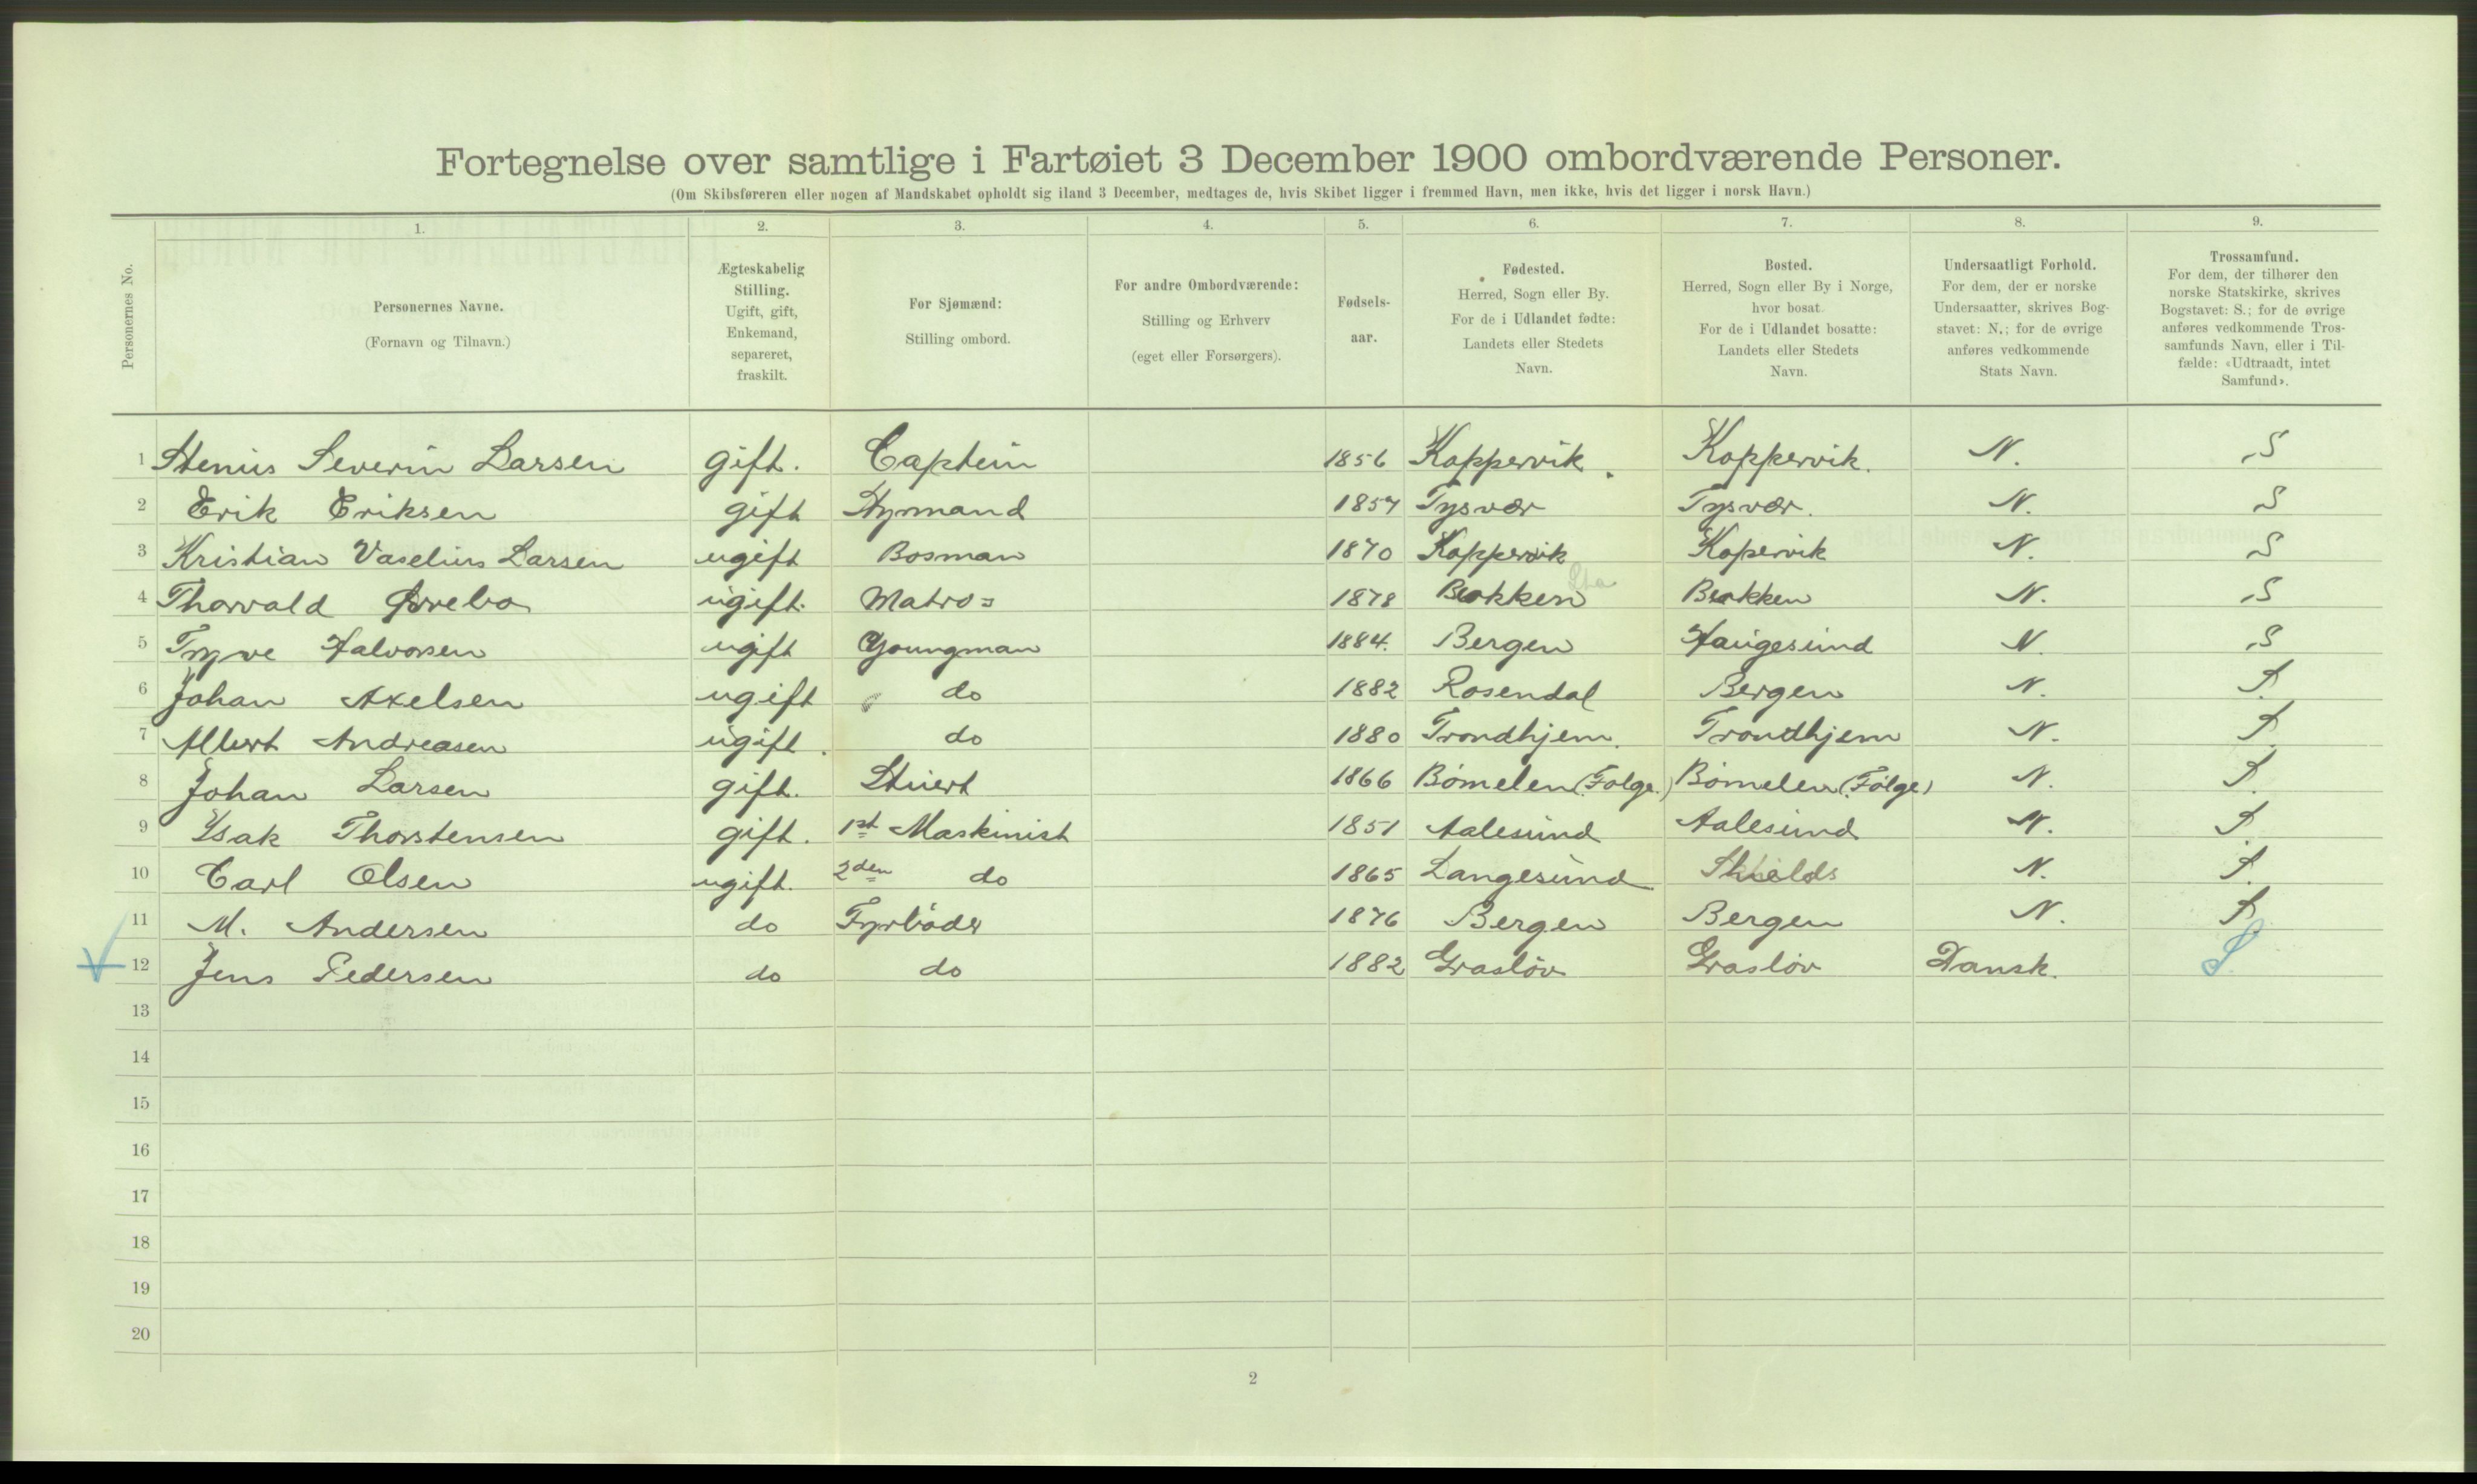 Fortegnelse over samtlige i Fartøiet 3 December 1900 ombordværende Personer.
(Om Skibsføreren eller nogen af Mandskabet opholdt sig iland 3 December, medtages de, hvis Skibet ligger i fremmed Havn, men ikke, hvis det ligger i norsk Havn.)
Personernes No.
1. 2. 3. 4. 5. 6. 7. 8. 9.
Personernes Navne.
(Fornavn og Tilnavn.)
Ægteskabelig
Stilling.
Ugift, gift,
Enkemand,
separeret,
fraskilt.
For Sjømænd:
Stilling ombord.
For andre Ombordværende:
Stilling og Erhverv
(eget eller Forsørgers).
Fødsels-
aar.
Fødested.
Herred, Sogn eller By.
For de i Udlandet fødte:
Landets eller Stedets
Navn.
Bosted.
Herred, Sogn eller By i Norge,
hvor bosat.
For de i Udlandet bosatte:
Landets eller Stedets
Navn.
Undersaatligt Forhold.
For dem, der er norske
Undersaatter, skrives Bog-
stavet: N.; for de øvrige
anføres vedkommende
Stats Navn.
Trossamfund.
For dem, der tilhører den
norske Statskirke, skrives
Bogstavet: S.; for de øvrige
anføres vedkommende Tros-
samfunds Navn, eller i Til-
fælde: «Udtraadt, intet
Samfund».
1 Stenius Severin Larsen gift. Captein 1856 Koppervik. Koppervik. N. S
2 Erik Eriksen gift Styrmand 1857 Tysvær Tysvær. N. S
3 Kristian Vaselius Larsen ugift Bosman 1870 Koppervik Kopervik N. S
4 Thorvald ugift. Matros 1878 N. S
5 Tryve Halvorsen ugift Youngman 1884. Bergen Haugesund N. S
6 Johan Axelsen ugift do 1882 Rosendal Bergen N. S.
7 Albert Andreasen ugift. do 1880 Trondhjem. Trondhjem N. S.
8 Johan Larsen gift. Stuert 1866 Bömelen (Folge.) Bömelen (Følge) N. S.
9 Isak Thorstensen gift. 1st Maskinist 1851 Aalesund Aalesund N. S.
10 Carl Olsen ugift. 2den do 1865 Langesund Shields N. S.
11 M. Andersen do Fyrböder 1876 Bergen Bergen N. S.
12 Jens Pedersen do do 1882 Grasløv Grasløv Dansk. S.
13
14
15
16
17
18
19
20
2